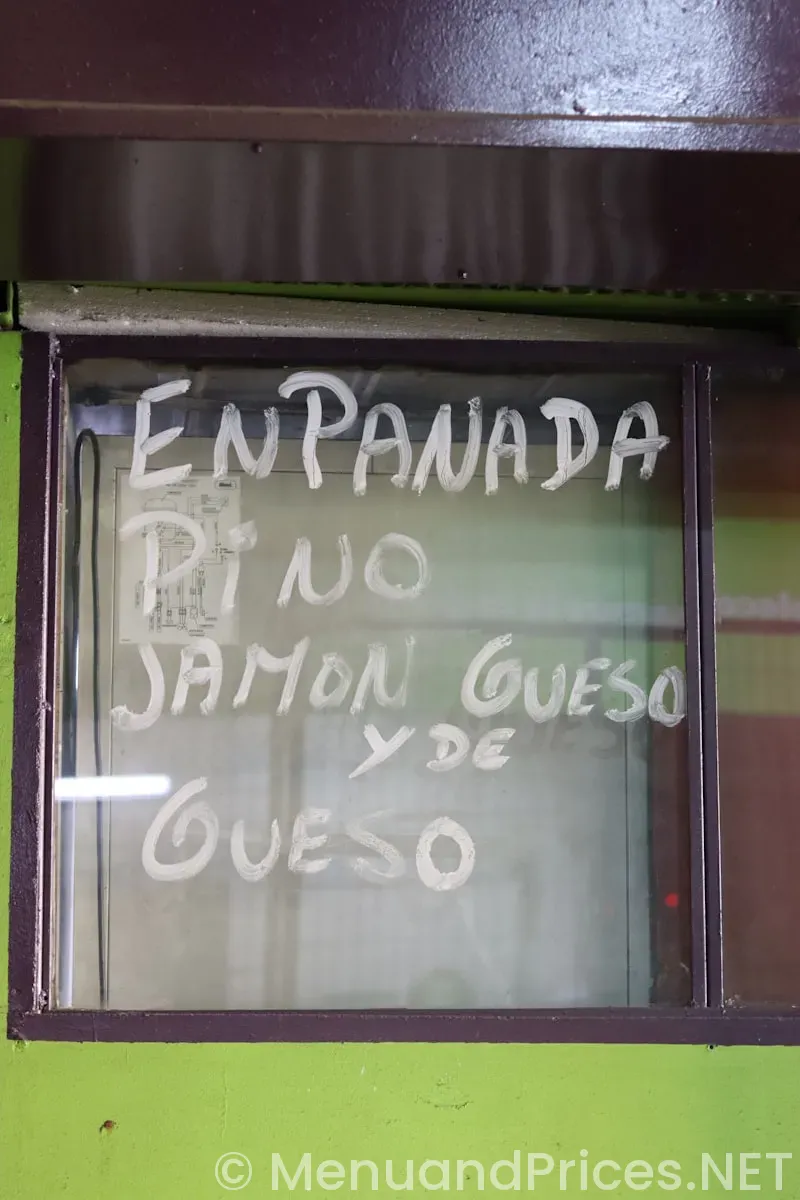 EnPANADA
PiNO
JAMON GUESO
Y DE
GUESO
© MenuandPrices.NET